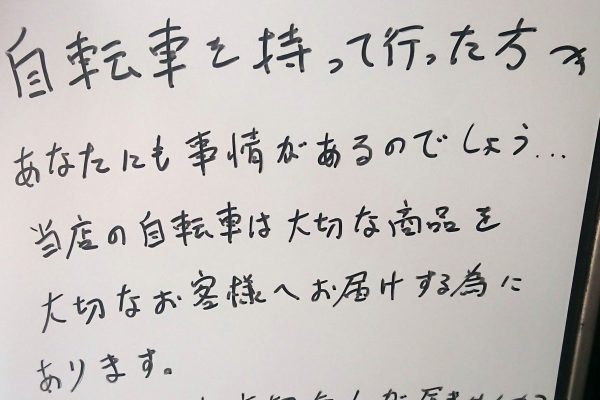 自転車を持って行った方へ
あなたにも事情があるのでしょう…
当店の自転車は大切な商品を
大切なお客様へお届けする為に
あります。